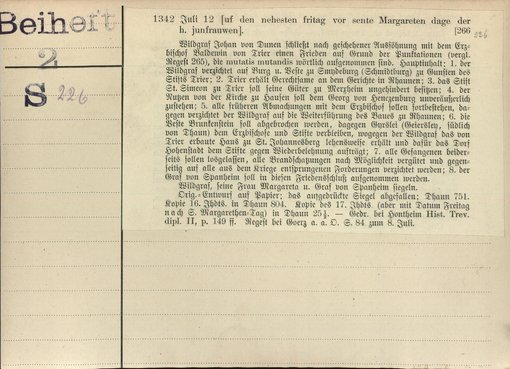 Beiheft
2
S 226
1342 Juli 12 [uf den nehesten fritag vor sente Margareten dage der
h. junfrauwen]. [266
226
Wildgraf Johan von Dunen schließt nach geschehener Aussöhnung mit dem Erz-
bischof Baldewin von Trier einen Frieden auf Grund der Punktationen (vergl.
Regest 265), die mutatis mutandis wörtlich aufgenommen sind. Hauptinhalt: 1. der
Wildgraf verzichtet auf Burg u. Veste zu Smydeburg (Schmidtburg) zu Gunsten des
Stifts Trier; 2. Trier erhält Gerechtsame an dem Gerichte in Rhaunen; 3. das Stift
St. Simeon zu Trier soll seine Güter zu Merxheim ungehindert besitzen; 4. der
Nutzen von der Kirche zu Hausen soll dem Georg von Henczenburg unveräußerlich
zustehen; 5. alle früheren Abmachungen mit dem Erzbischof sollen fortbestehen, da-
gegen verzichtet der Wildgraf auf die Weiterführung des Baues zu Rhaunen; 6. die
Veste Brunkenstein soll abgebrochen werden, dagegen Gyrslei (Geierslay, südlich
von Dhaun) dem Erzbischofe und Stifte verbleiben, wogegen der Wildgraf das von
Trier erbaute Haus zu St. Johannesberg lehensweise erhält und dafür das Dorf
Hohenstadt dem Stifte gegen Wiederbelehnung aufträgt; 7. alle Gefangenen beider-
seits sollen losgelassen, alle Brandschatzungen nach Möglichkeit vergütet und gegen-
seitig auf alle aus dem Kriege entsprungenen Forderungen verzichtet werden; 8. der
Graf von Spanheim soll in diesen Friedensschluß aufgenommen werden.
Wildgraf, seine Frau Margareta u. Graf von Spanheim siegeln.
Orig.-Entwurf auf Papier; das aufgedrückte Siegel abgefallen; Dhaun 751.
Kopie 16. Jhdts. in Dhaun 804. Kopie des 17. Jhdts. (aber mit Datum Freitag
nach S. Margarethen-Tag) in Dhaun 25¾. — Gedr. bei Hontheim Hist. Trev.
dipl. II, p. 149 ff. Regest bei Goerz a. a. O. S. 84 zum 8. Juli.